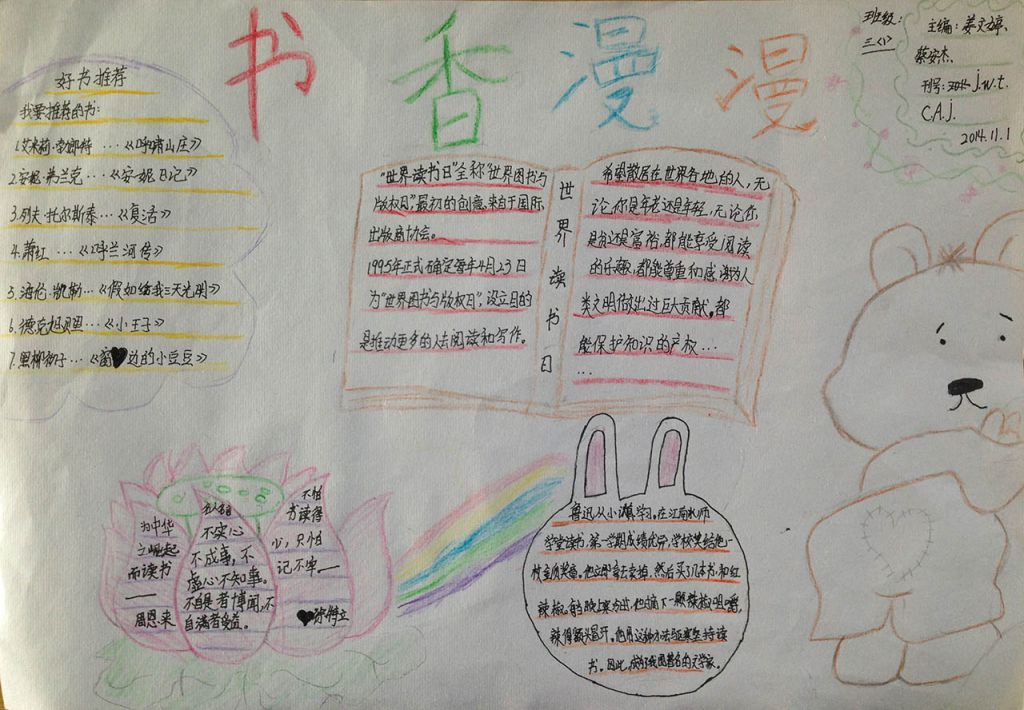 书香漫漫
班级:
三<1>
主编:姜文婷、
蔡安杰
刊号:
j.w.t.
C.A.j.
2014.11.1
好书推荐
我要推荐的书:
1.艾米莉·勃朗特 …《呼啸山庄》
2.安妮·弗兰克…《安妮日记》
3.列夫·托尔斯泰…《复活》
4.萧红 …《呼兰河传》
5.海伦·凯勒…《假如给我三天光明》
6.德克旭贝里…《小王子》
7.黑柳彻子 …《窗边的小豆豆》
“世界读书日”全称“世界图书与
版权日”,最初的创意来自于国际
出版商协会。
1995年正式确定每年4月23日
为“世界图书与版权日”,设立目的
是推动更多的人去阅读和写作。
世界读书日
希望散居在世界各地的人,无
论你是年老还是年轻,无论你
是贫还是富裕,都能享受阅读
的乐趣,都能尊重和感谢为人
类文明做出过巨大贡献,都
能保护知识的产权…
…
为中华
之崛起
而读书
——
周恩来
不实心
不成事,不
虚心不知事。
不自是者博闻,不
自满者受益。
不怕
书读得
少,只怕
记不牢——
徐特立
鲁迅从小认真学习。在江南水师
学堂读书,第一学期成绩优异,学校奖给他一
枚金质奖章。他立即拿去卖掉,然后买了几本书,和红
辣椒。每当晚上寒冷时,他摘下一颗辣椒,咀嚼,
辣得额头冒汗。他用这种办法驱寒坚持读
书。因此,成为我国著名的文学家。